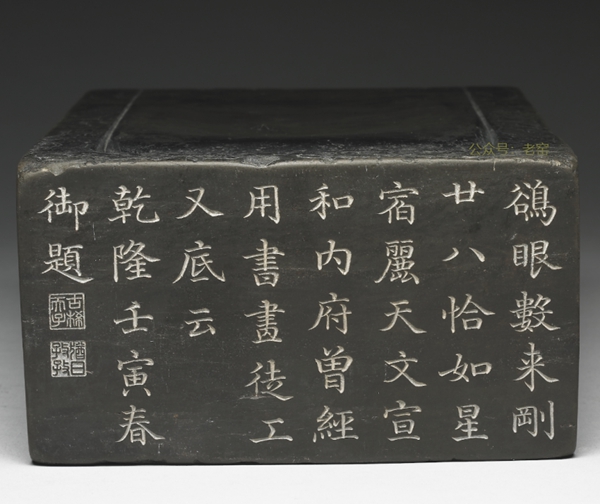 鴝眼數来剛
廿八恰如星
宿麗天文宣
和内府曽經
用書畫徒工
又底云
乾隆壬寅春
御題
古稀天子
猶日孜孜
公众号 老窑